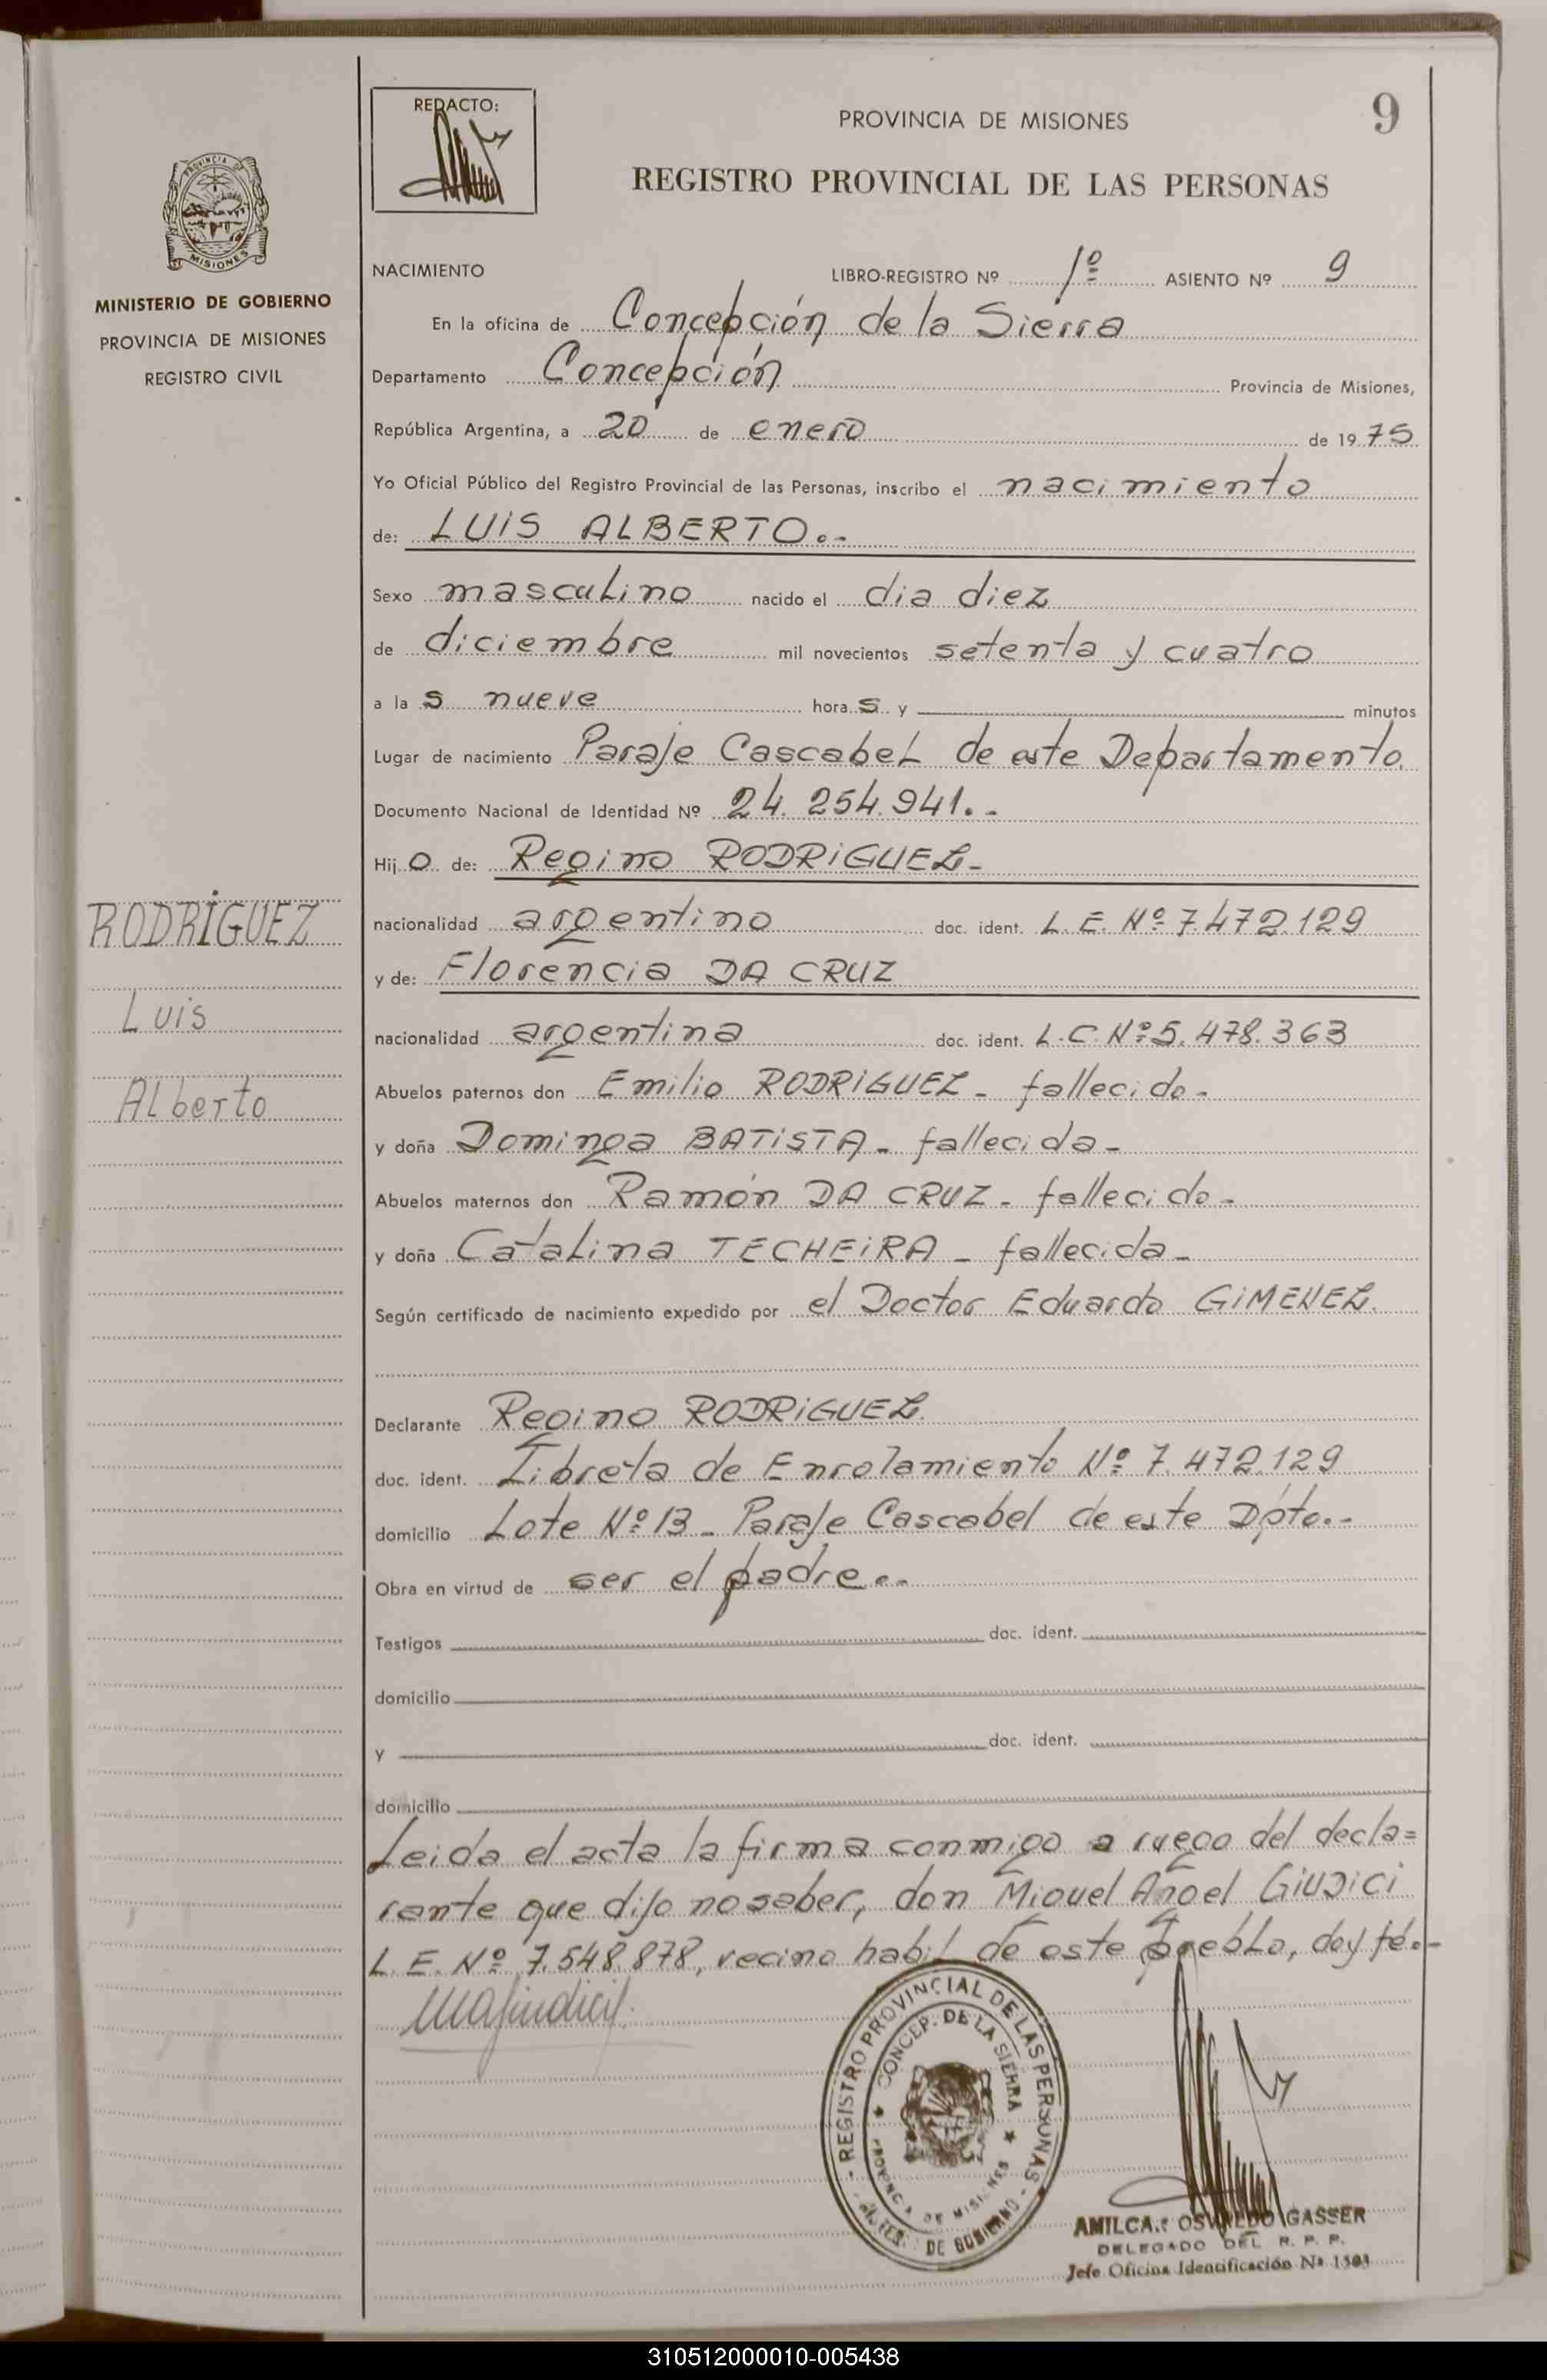 REDACTO:
PROVINCIA DE MISIONES
9
REGISTRO PROVINCIAL DE LAS PERSONAS
PROVINCIA DE
MISIONES
MINISTERIO DE GOBIERNO
PROVINCIA DE MISIONES
REGISTRO CIVIL
NACIMIENTO LIBRO-REGISTRO Nº 1º ASIENTO Nº 9
En la oficina de Concepción de la Sierra
Departamento Concepción Provincia de Misiones,
República Argentina, a 20 de enero de 1975
Yo Oficial Público del Registro Provincial de las Personas, inscribo el nacimiento
de: LUIS ALBERTO.-
Sexo masculino nacido el dia diez
de diciembre mil novecientos setenta y cuatro
a la s nueve hora s y minutos
Lugar de nacimiento Paraje Cascabel de este Departamento.
Documento Nacional de Identidad Nº 24.254.941.-
Hij o de: Regino RODRIGUEZ-
RODRÍGUEZ
Luis
Alberto
nacionalidad argentino doc. ident. L.E. Nº 7.472.129
y de: Florencia DA CRUZ
nacionalidad argentina doc. ident. L.C. Nº 5.478.363
Abuelos paternos don Emilio RODRIGUEZ - fallecido-
y doña Dominga BATISTA - fallecida-
Abuelos maternos don Ramón DA CRUZ - fallecido-
y doña Catalina TECHEIRA - fallecida-
Según certificado de nacimiento expedido por el Doctor Eduardo GIMENEZ.
Declarante Regino RODRIGUEZ.
doc. ident. Libreta de Enrolamiento Nº 7.472.129
domicilio Lote Nº 13 - Paraje Cascabel de este Dpto.-
Obra en virtud de ser el padre.-
Testigos doc. ident.
domicilio
y doc. ident.
domicilio
Leida el acta la firma conmigo a ruego del decla=
rante que dijo no saber, don Miguel Angel GIUDICI
L.E. Nº 7.548.878, vecino habil de este pueblo, doy fé.-
REGISTRO PROVINCIAL DE LAS PERSONAS
CONCEP. DE LA SIERRA
PROVINCIA DE MISIONES
DE GOBIERNO
AMILCAR OSVALDO GASSER
DELEGADO DEL R. P. P.
Jefe Oficina Identificación Nº
310512000010-005438